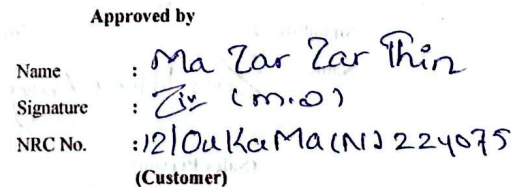 Approved by
Name : Ma Zar Zar Thin
Signature : Ziv (M.D)
NRC No. : 12/OuKaMa(N) 224075
(Customer)